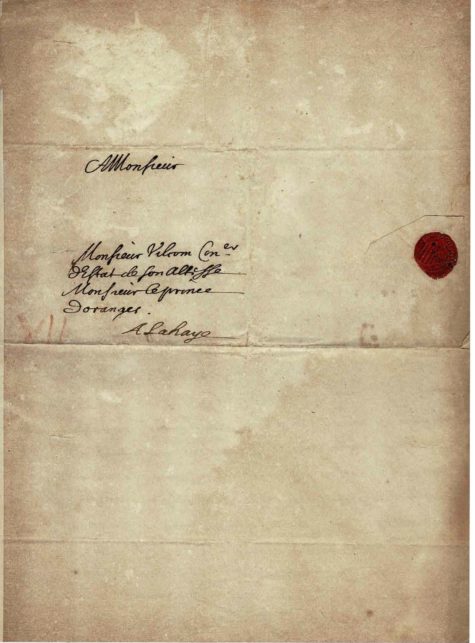 A Monsieur
Monsieur Vilcom Con.er
d'Estat de son Altesse
Monsieur le prince
Doranges.
A La Haye
XII